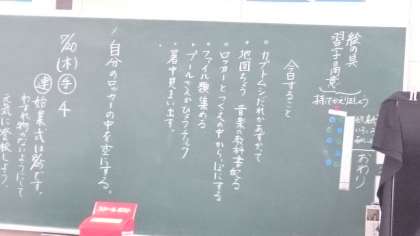 絵の具
習字用意
持ってかえりましょう
おわり
今日すること
・カブトムシだれかあずかって
・地図ちょう 音楽の教科書配る
・ロッカーとつくえの中からっぽにする
・ファイル類集める
・プールさんかひょうチェック
・暑中見まいます。
自分のロッカーの中を空にする。
7/20(木)
手 4
連 始業式は翌です。
わすれ物のないようにして
元気に登校しよう。